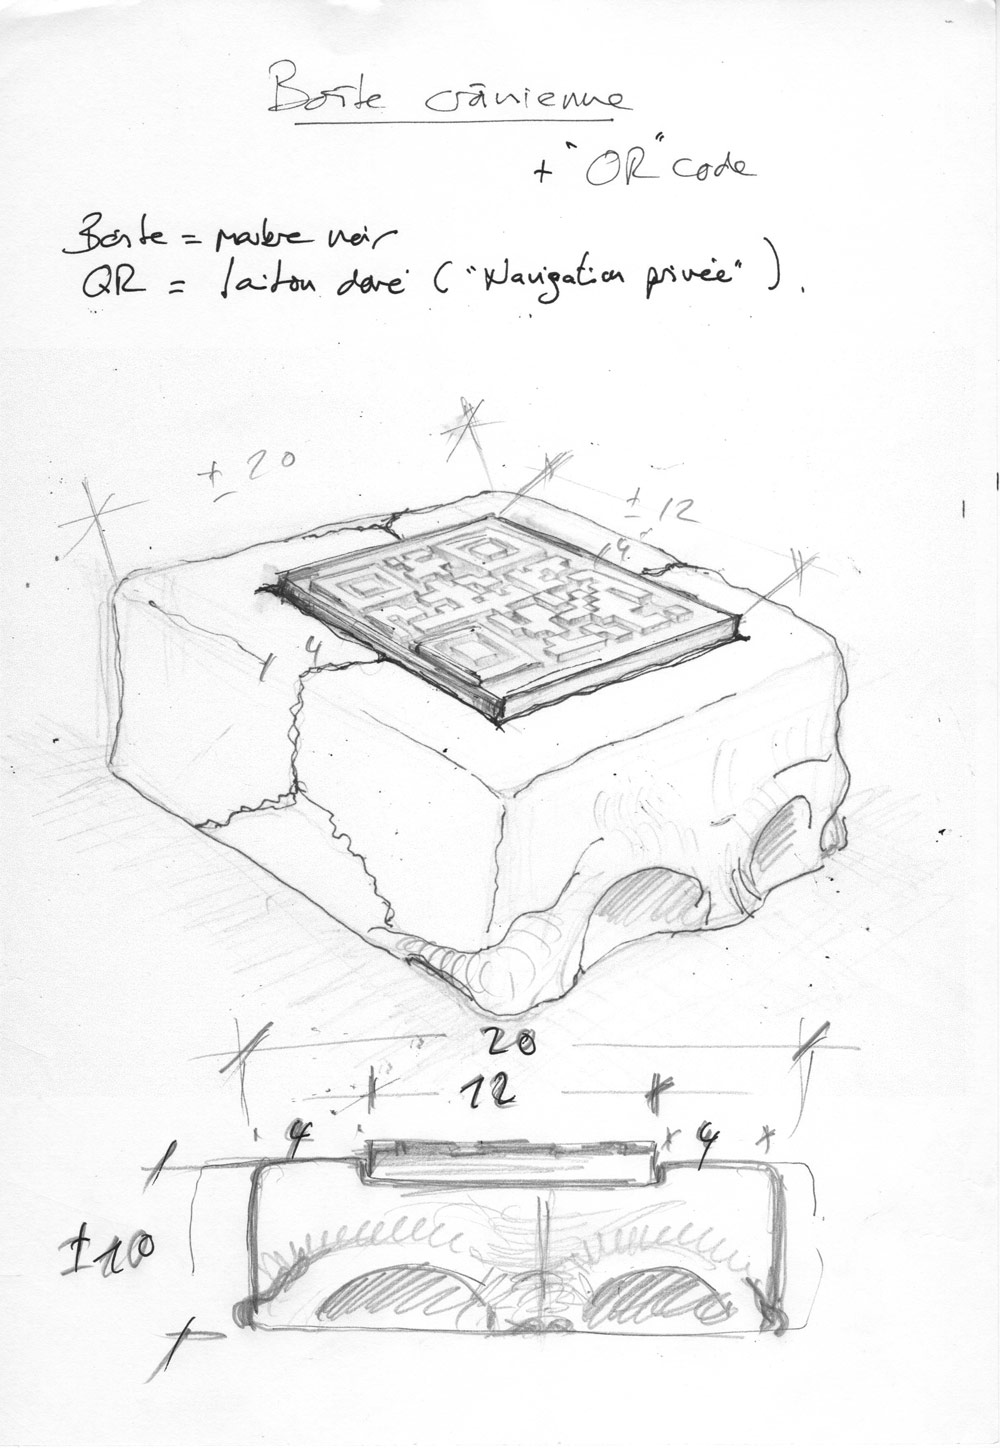 Boîte crânienne
+ "OR" code
Boîte = marbre noir
QR = laiton doré ("Navigation privée").
± 20
± 12
4
4
20
12
4
4
±10